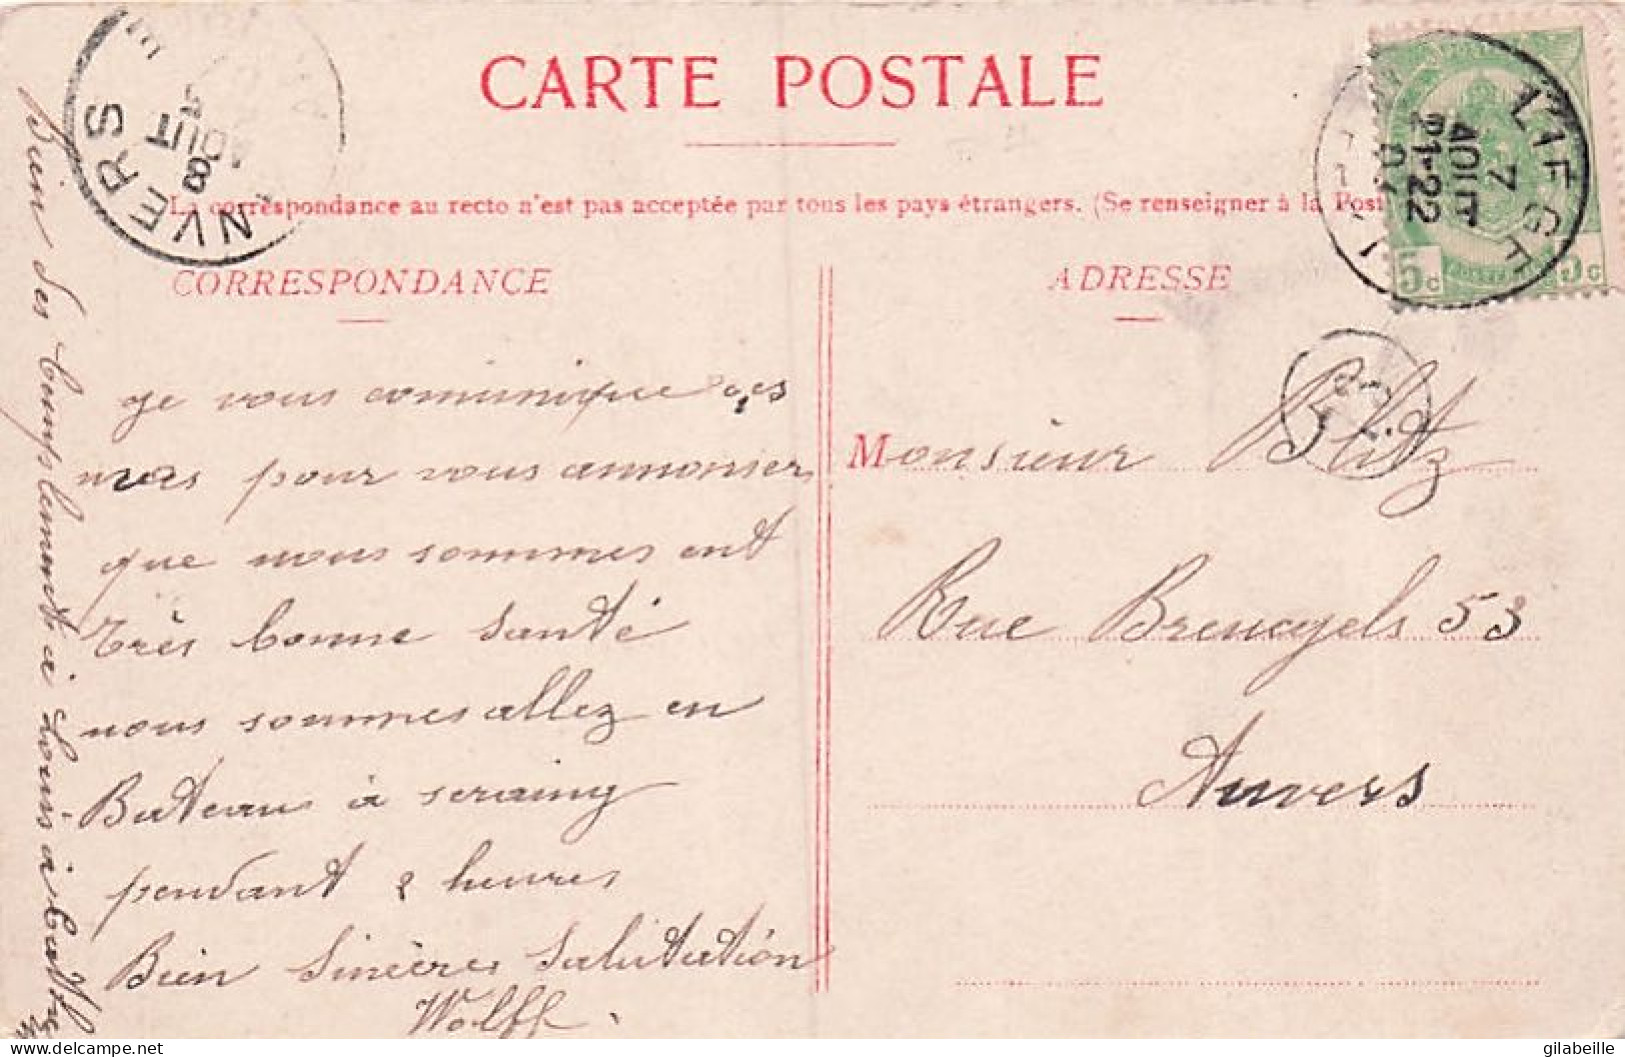 CARTE POSTALE
La correspondance au recto n'est pas acceptée par tous les pays étrangers. (Se renseigner à la Post
CORRESPONDANCE
je vous comunique ces
mos pour vous annonser
que nous sommes ent
très bonne santé
nous sommes allez en
Bateau à seraing
pendant 2 heures
Bien sincères salutation
Wolff.
Bien des Complements à Louis à
ADRESSE
Monsieur Blitz
Rue Breughels 53
Anvers
ANVERS
8
AOUT
LIEGE
7
AOUT
21-22
5c 5c
delcampe.net
gilabeille